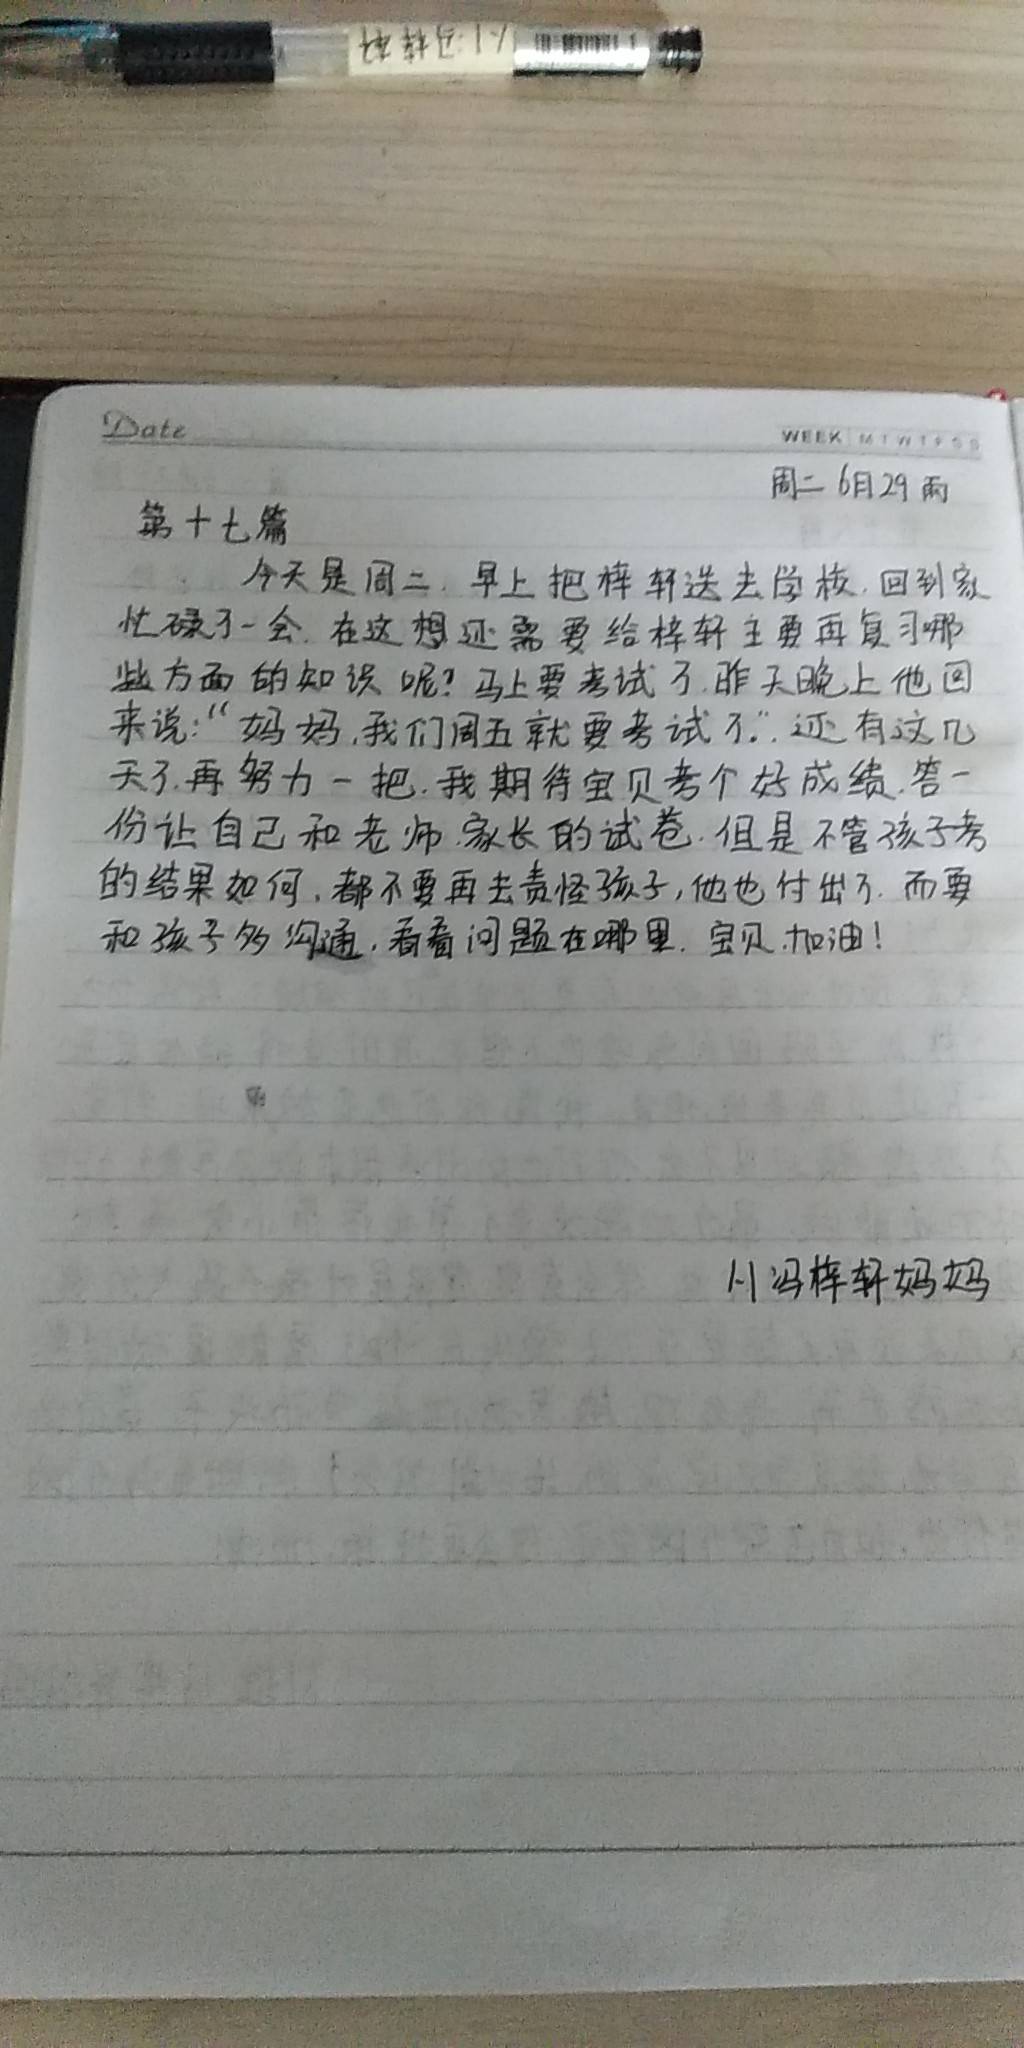 1-1冯梓轩
Date
WEEK M T W T F S S
周二 6月29 雨
第十七篇
今天是周二.早上把梓轩送去学校.回到家
忙碌了一会.在这想还需要给梓轩主要再复习哪
些方面的知识呢?马上要考试了.昨天晚上他回
来说:“妈妈,我们周五就要考试了.”.还有这几
天了.再努力一把.我期待宝贝考个好成绩.答一
份让自己和老师.家长的试卷.但是不管孩子考
的结果如何,都不要再去责怪孩子,他也付出了.而要
和孩子多沟通,看看问题在哪里.宝贝.加油!
1-1冯梓轩妈妈